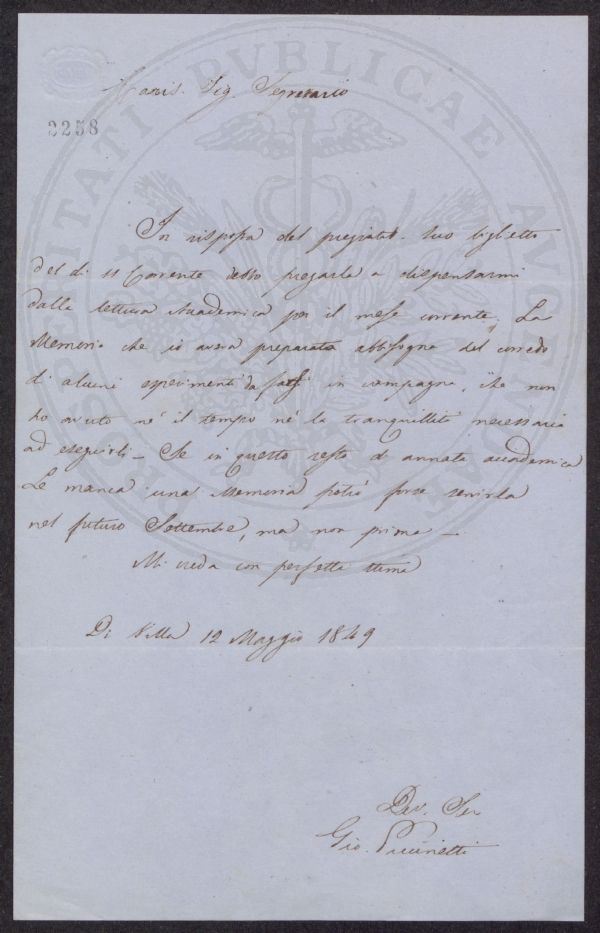 PROSPERITATI PVBLICAE AVGENDAE
Sig. Segretario
2258
In risposta del pregiato suo biglietto
del dì 11 Corrente debbo pregarla a dispensarmi
dalla lettura Accademica per il mese corrente. La
Memoria che io aveva preparata abbisogna del corredo
di alcuni esperimenti da farsi in campagna, che non
ho avuto nè il tempo nè la tranquillità necessaria
ad eseguirli – Se in questo resto di annata accademica
Le manca una Memoria potrò forse servirla
nel futuro Settembre, ma non prima –
Mi creda con perfetta stima
Di Villa 12 Maggio 1849
Dev. Ser
Gio.